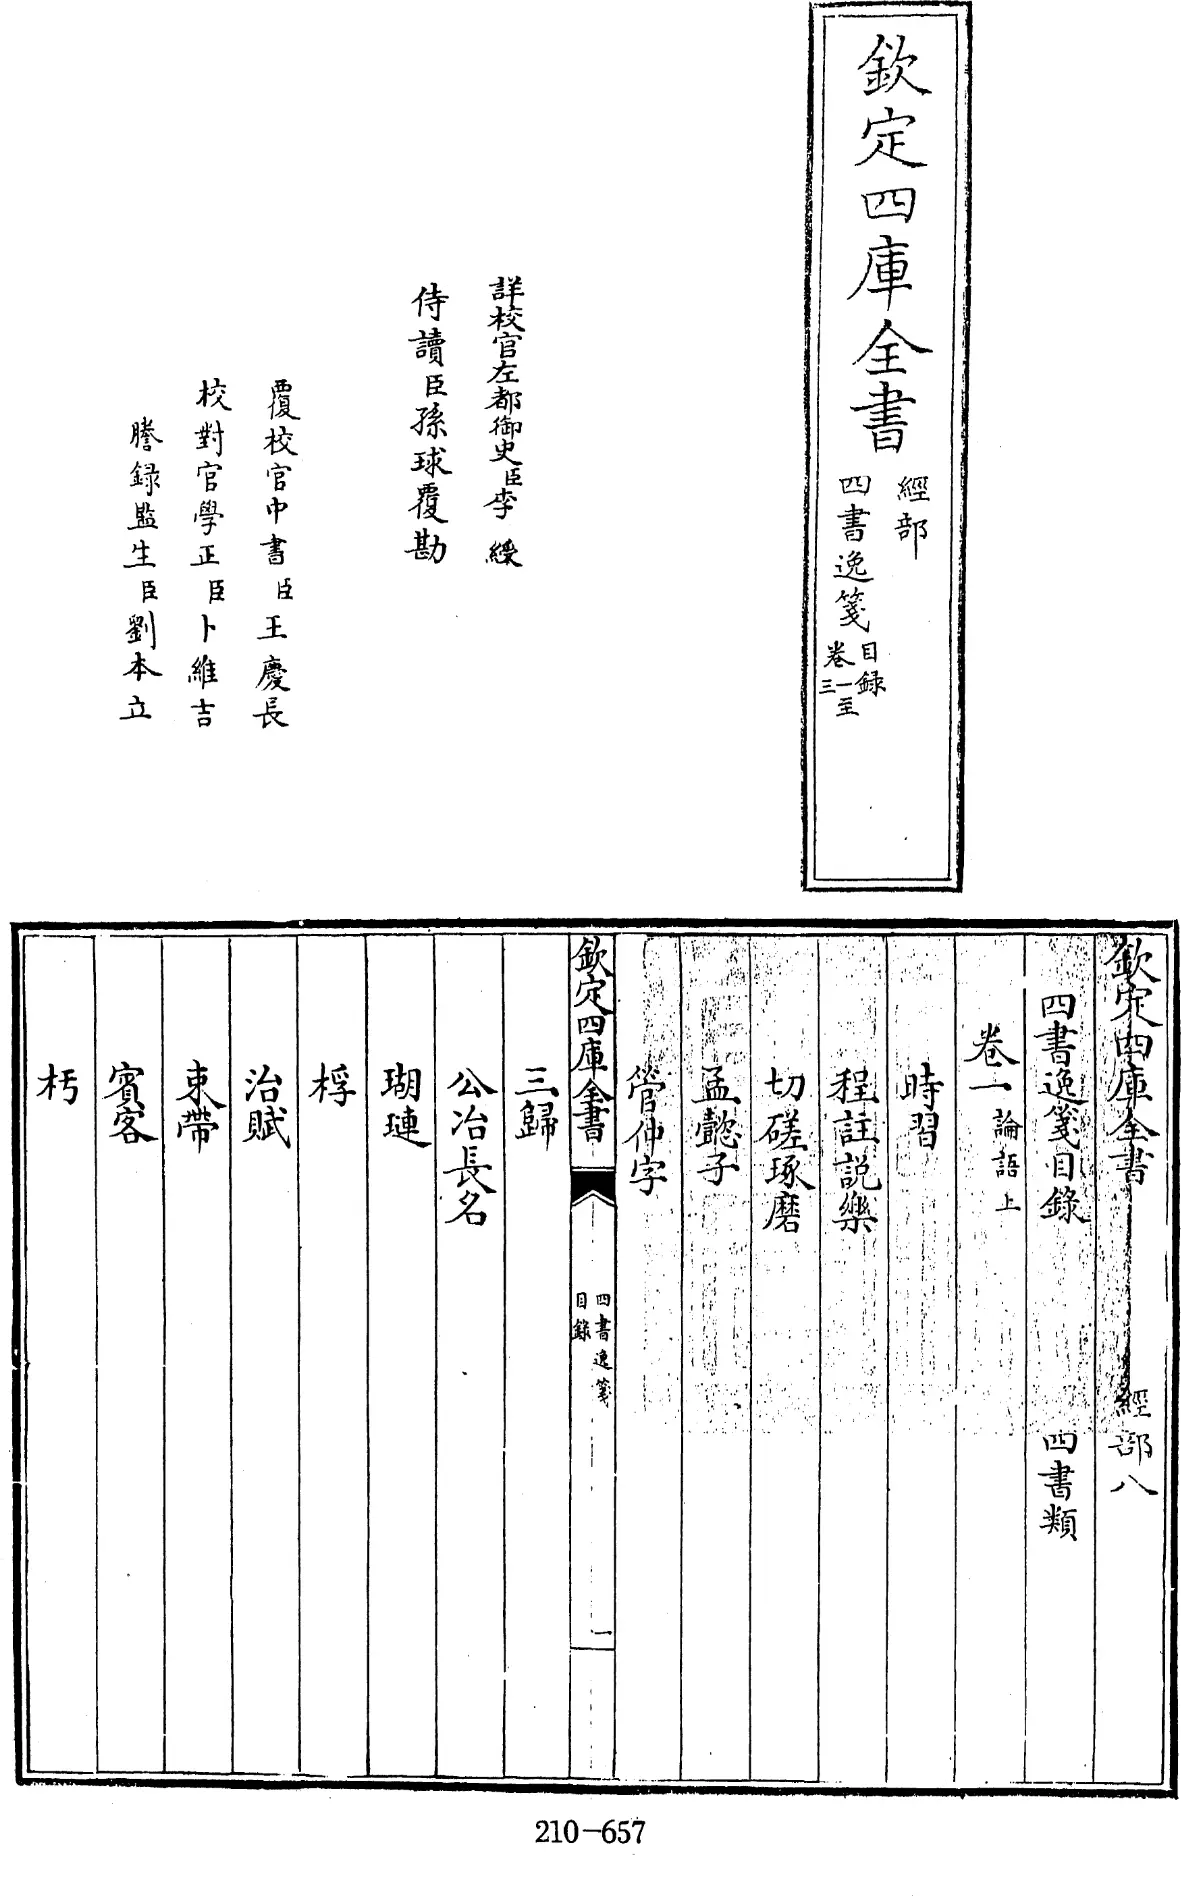 欽定四庫全書
經部
四書逸箋
目録
卷一至
三
詳校官左都御史臣李綬
侍讀臣孫球覆勘
覆校官中書臣王慶長
校對官學正臣卜維吉
謄録監生臣劉本立
欽定四庫全書 經部八
四書逸箋目錄 四書類
卷一 論語上
時習
程註説樂
切磋琢磨
孟懿子
管仲字
欽定四庫全書
四書逸箋
目錄
一
三歸
公冶長名
瑚璉
桴
治賦
束帶
賓客
朽
210-657